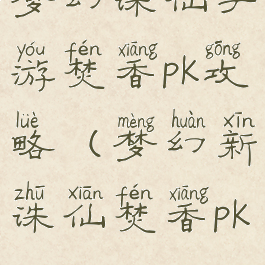 梦幻诛仙手
yóu fén xiāng gōng
游焚香pk攻
lüè mèng huàn xīn
略(梦幻新
zhū xiān fén xiāng
诛仙焚香pk